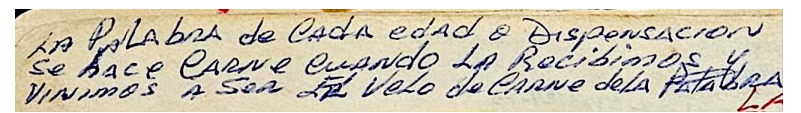 LA PALAbRA de CADA edAd o DispensACION
se hACE CARNE CUANDO LA Recibimos y
VINIMOS A SER EL VeLo de CARNE de LA PALABRA
LA